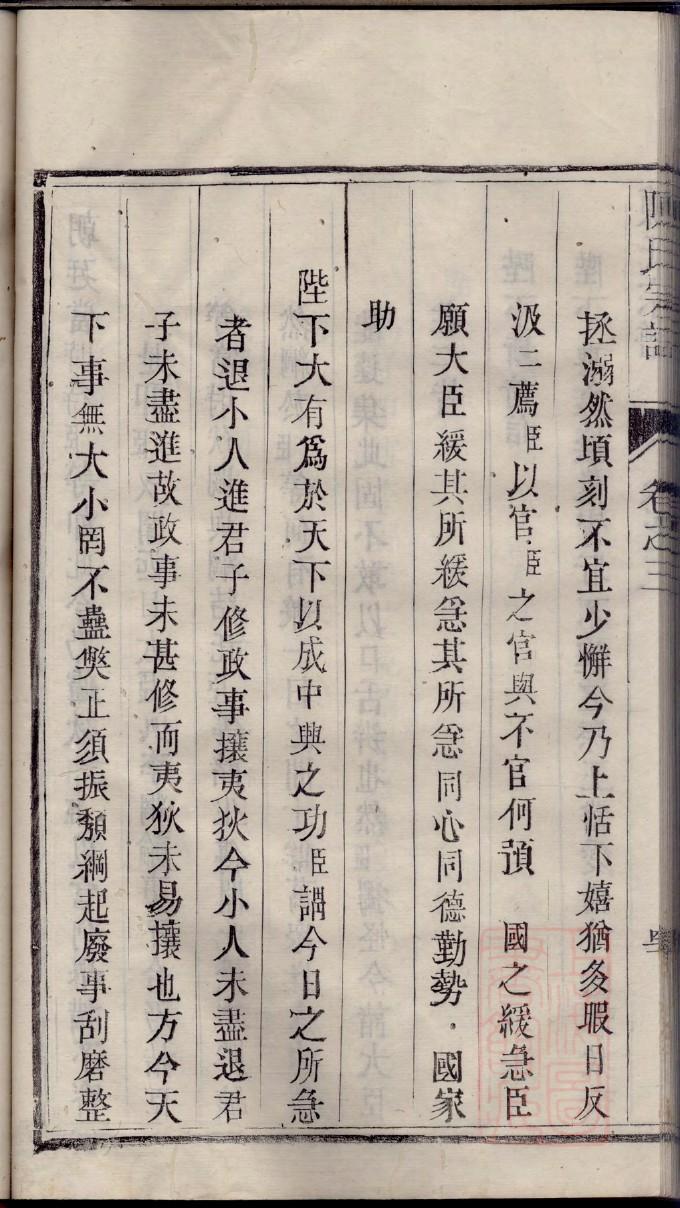 陳氏宗譜 卷之三
拯溺然頃刻不宜少懈今乃上恬下嬉猶多暇日反
汲二薦臣以官臣之官與不官何預 國之緩急臣
願大臣緩其所緩急其所急同心同德勤勢 國家
助
陛下大有爲於天下以成中興之功臣謂今日之所急
者退小人進君子修政事攘夷狄今小人未盡退君
子未盡進故政事未甚修而夷狄未易攘也方今天
下事無大小罔不蠱獘正須振頽綱起廢事刮磨整